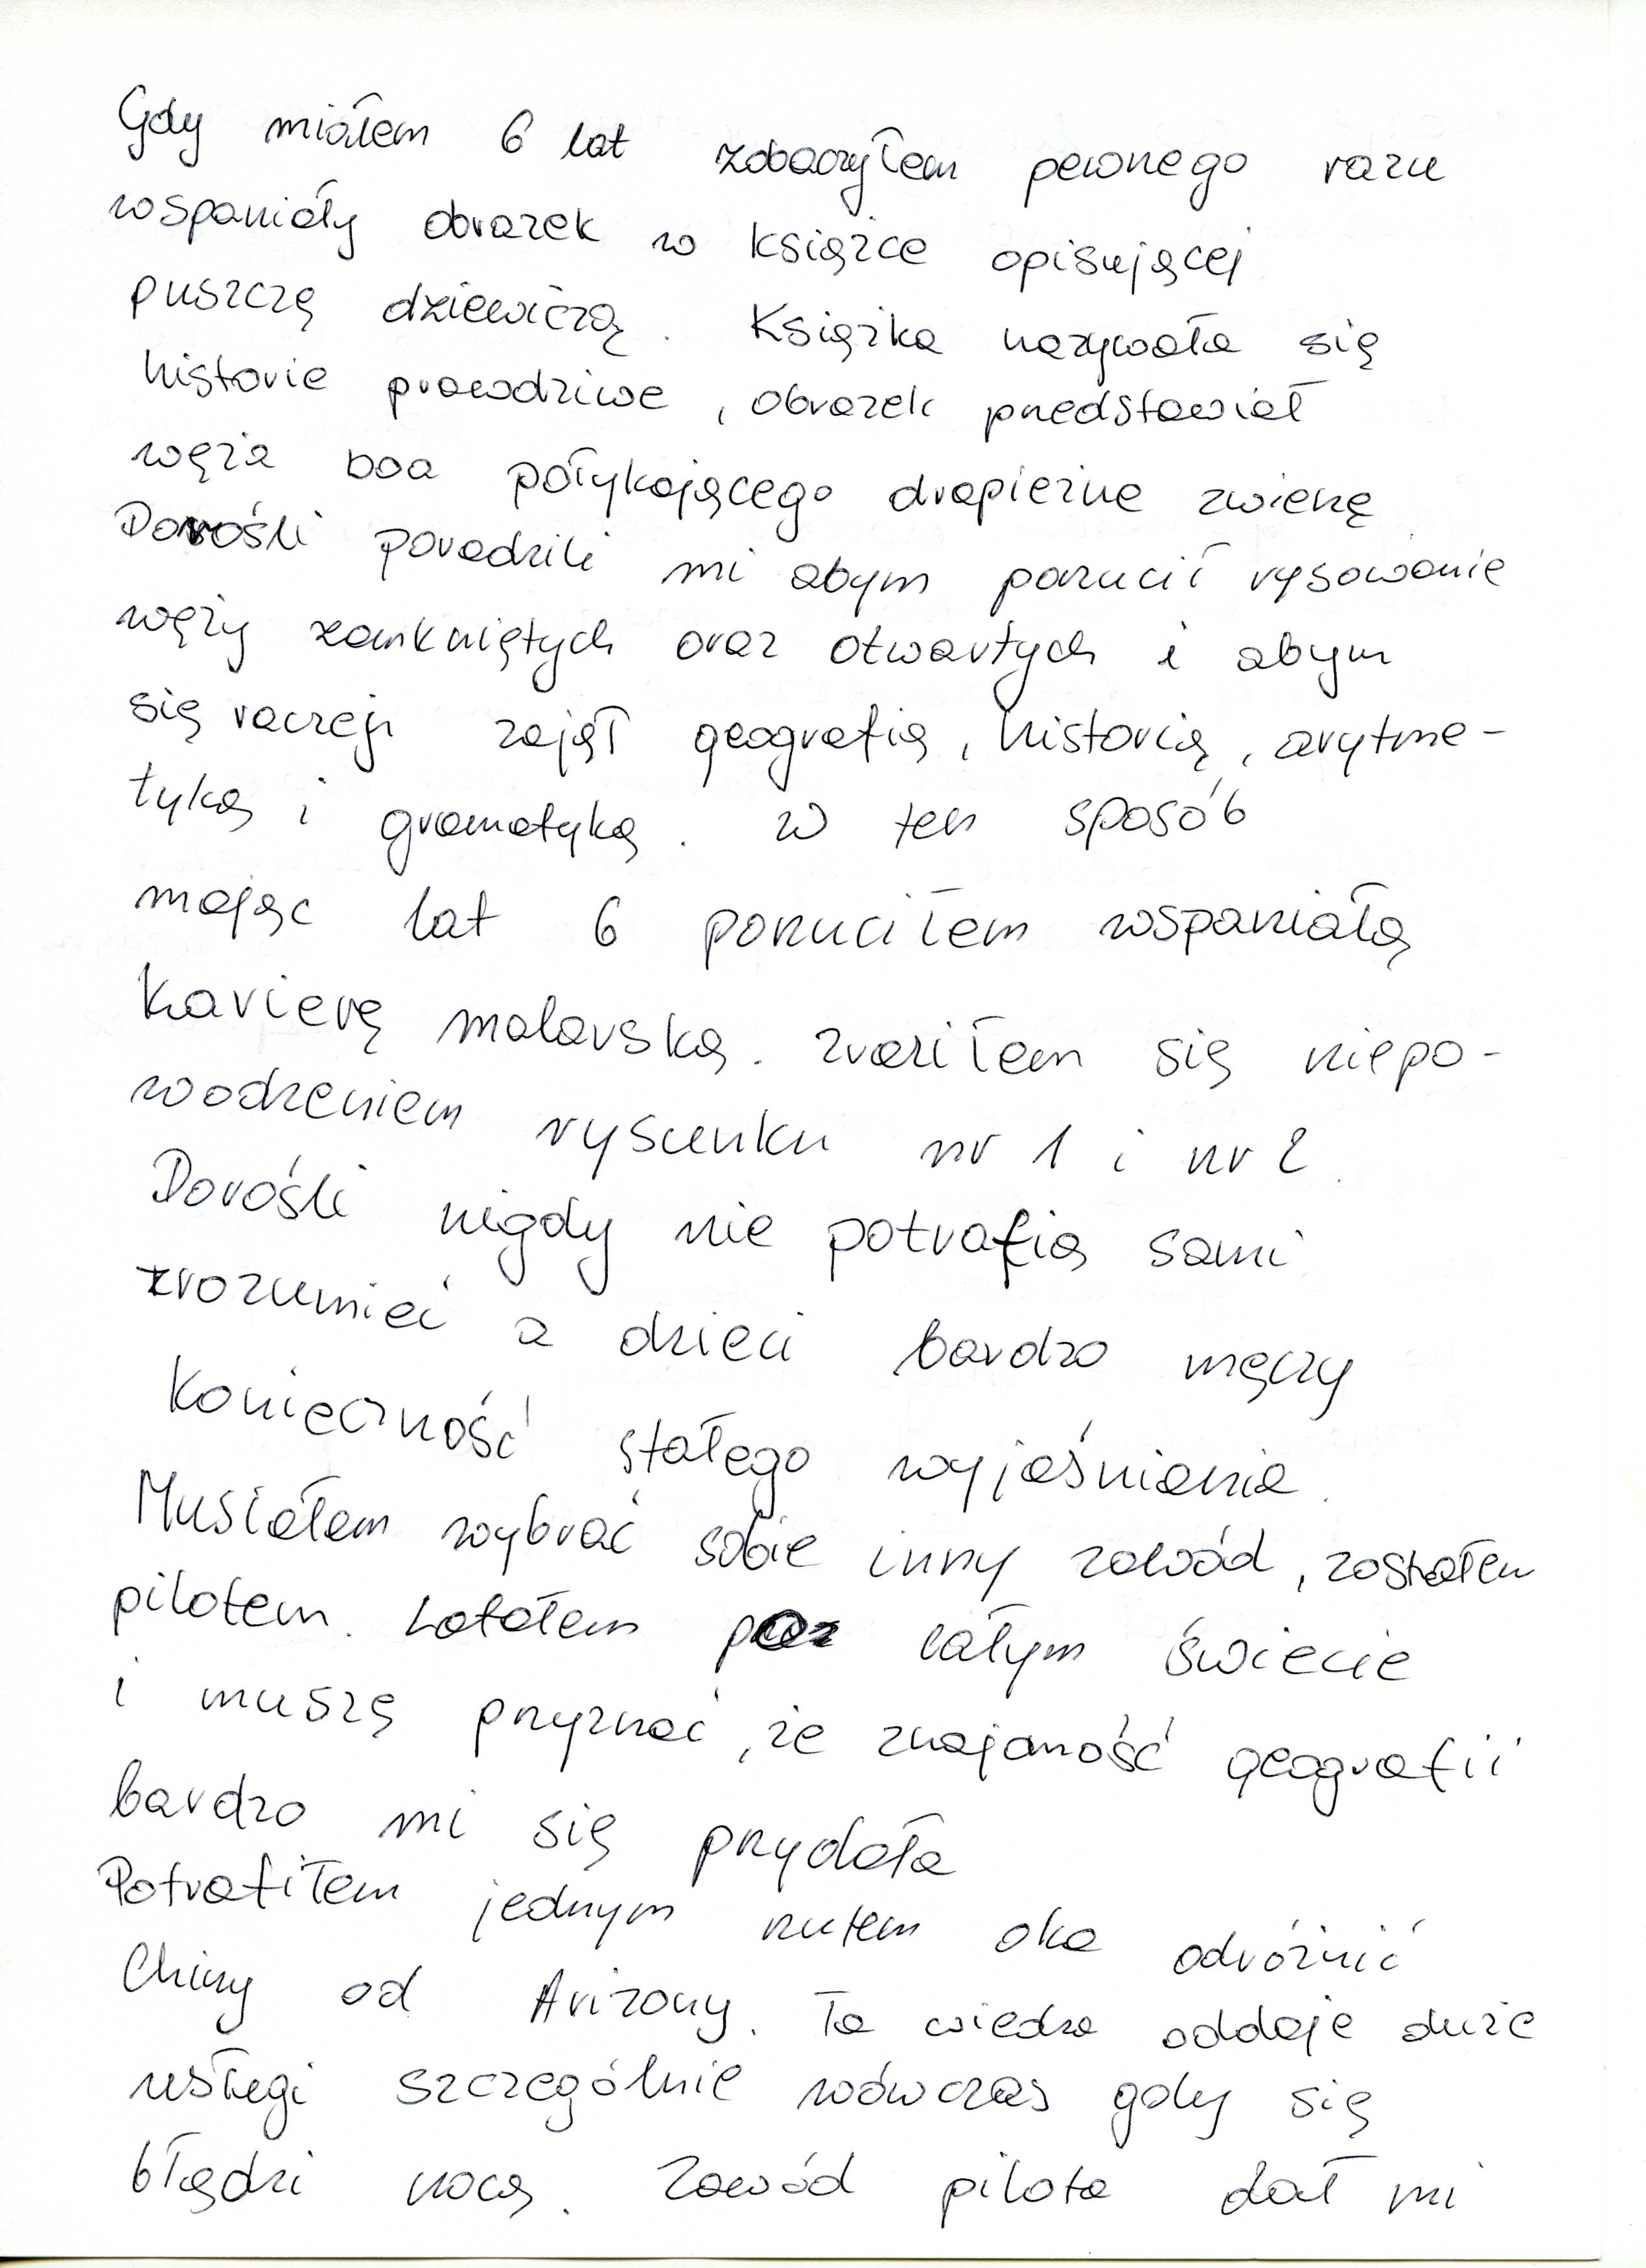 Gdy miałem 6 lat zobaczyłem pewnego razu
wspaniały obrazek w książce opisującej
puszczę dziewiczą. Książka nazywała się
historie prawdziwe, obrazek przedstawiał
węża boa połykającego drapieżne zwierzę
Dorośli poradzili mi abym porzucił rysowanie
węży zamkniętych oraz otwartych i abym
się raczej zajął geografią, historią, arytme-
tyką i gramatyką. W ten sposób
mając lat 6 porzuciłem wspaniałą
karierę malarską. Zraziłem się niepo-
wodzeniem rysunku nr 1 i nr 2.
Dorośli nigdy nie potrafią sami
zrozumieć a dzieci bardzo męczy
konieczność stałego wyjaśniania.
Musiałem wybrać sobie inny zawód, zostałem
pilotem. Latałem po całym świecie
i muszę przyznać, że znajomość geografii
bardzo mi się przydała
Potrafiłem jednym rzutem oka odróżnić
Chiny od Arizony. Ta wiedza oddaje duże
usługi szczególnie wówczas gdy się
błądzi nocą. Zawód pilota dał mi